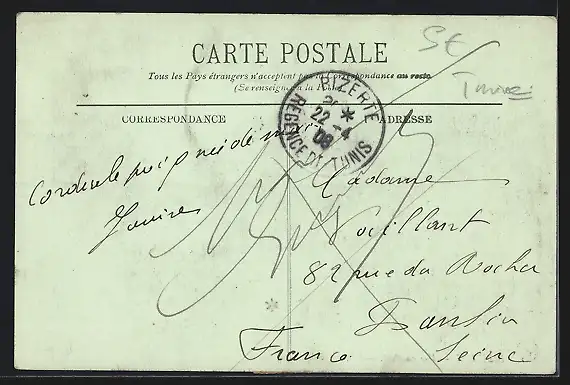 CARTE POSTALE
Tous les Pays étrangers n'acceptent pas la Correspondance au recto
(Se renseigner à la Poste)
CORRESPONDANCE
ADRESSE
BIZERTE
22 - 4
08
REGENCE DE TUNIS
Cordiale poignée de main
Madame
82 rue du Rocher
Seine
France